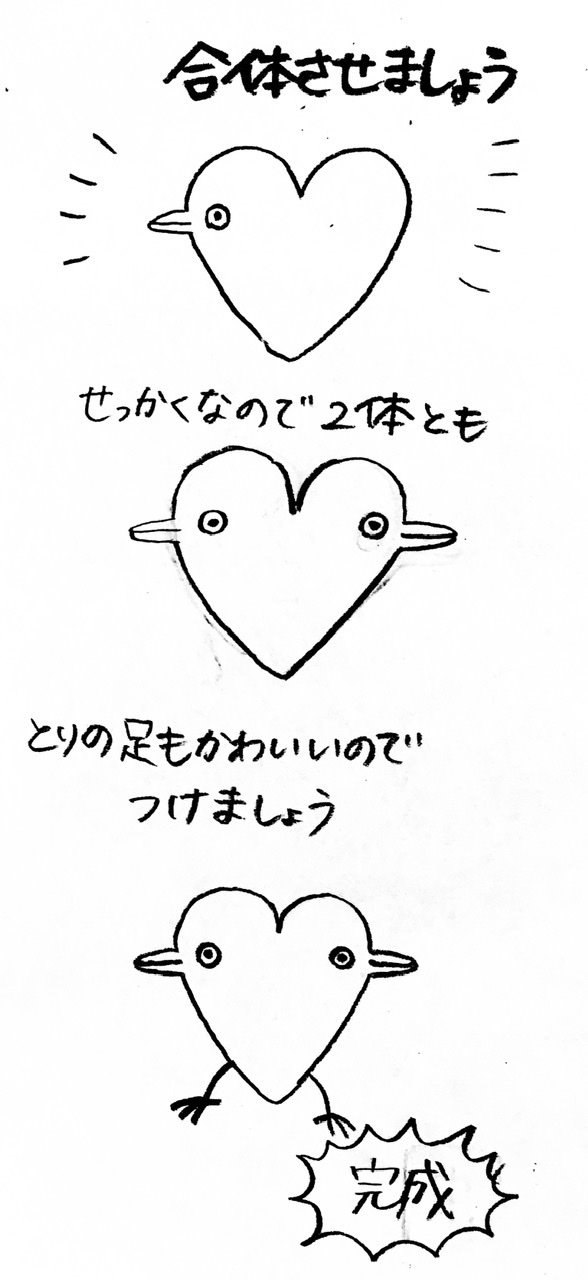 合体させましょう
せっかくなので2体とも
とりの足もかわいいので
つけましょう
完成